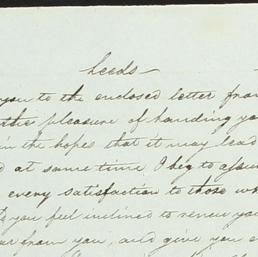 Leeds —
you to the enclosed letter from
the pleasure of handing you
in the hopes that it may lead
at same time I beg to assure
every satisfaction to those who
you feel inclined to renew you
from you, and give you